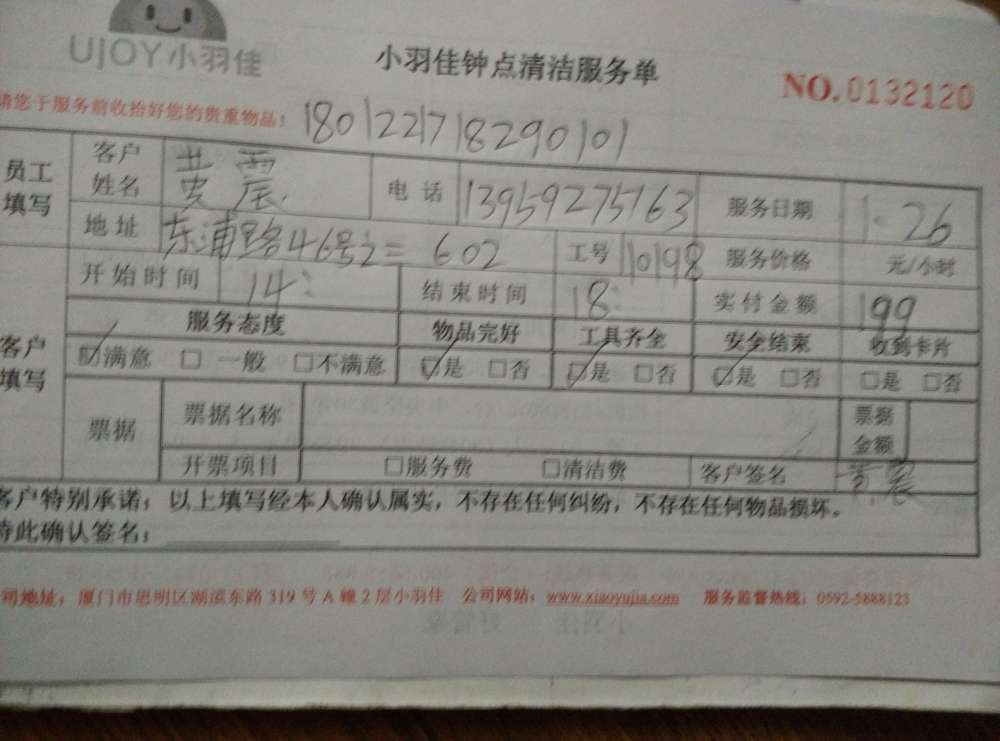 UJOY小羽佳
小羽佳钟点清洁服务单
NO.0132120
请您于服务前收拾好您的贵重物品:
180122718290101
员工填写 客户姓名 黄震 电话 13959275163 服务日期 1.26
地址 东浦路46号之二 602 工号 10198 服务价格 元/小时
开始时间 14: 结束时间 18: 实付金额 199
客户填写 服务态度 物品完好 工具齐全 安全结束 收到卡片
☑满意 □一般 □不满意 ☑是 □否 ☑是 □否 ☑是 □否 □是 □否
票据 票据名称 票据金额
开票项目 □服务费 □清洁费 客户签名 黄震
客户特别承诺:以上填写经本人确认属实,不存在任何纠纷,不存在任何物品损坏。
特此确认签名:
司地址:厦门市思明区湖滨东路319号A幢2层小羽佳 公司网站:www.xiaoyujia.com 服务监督热线:0592-5888123